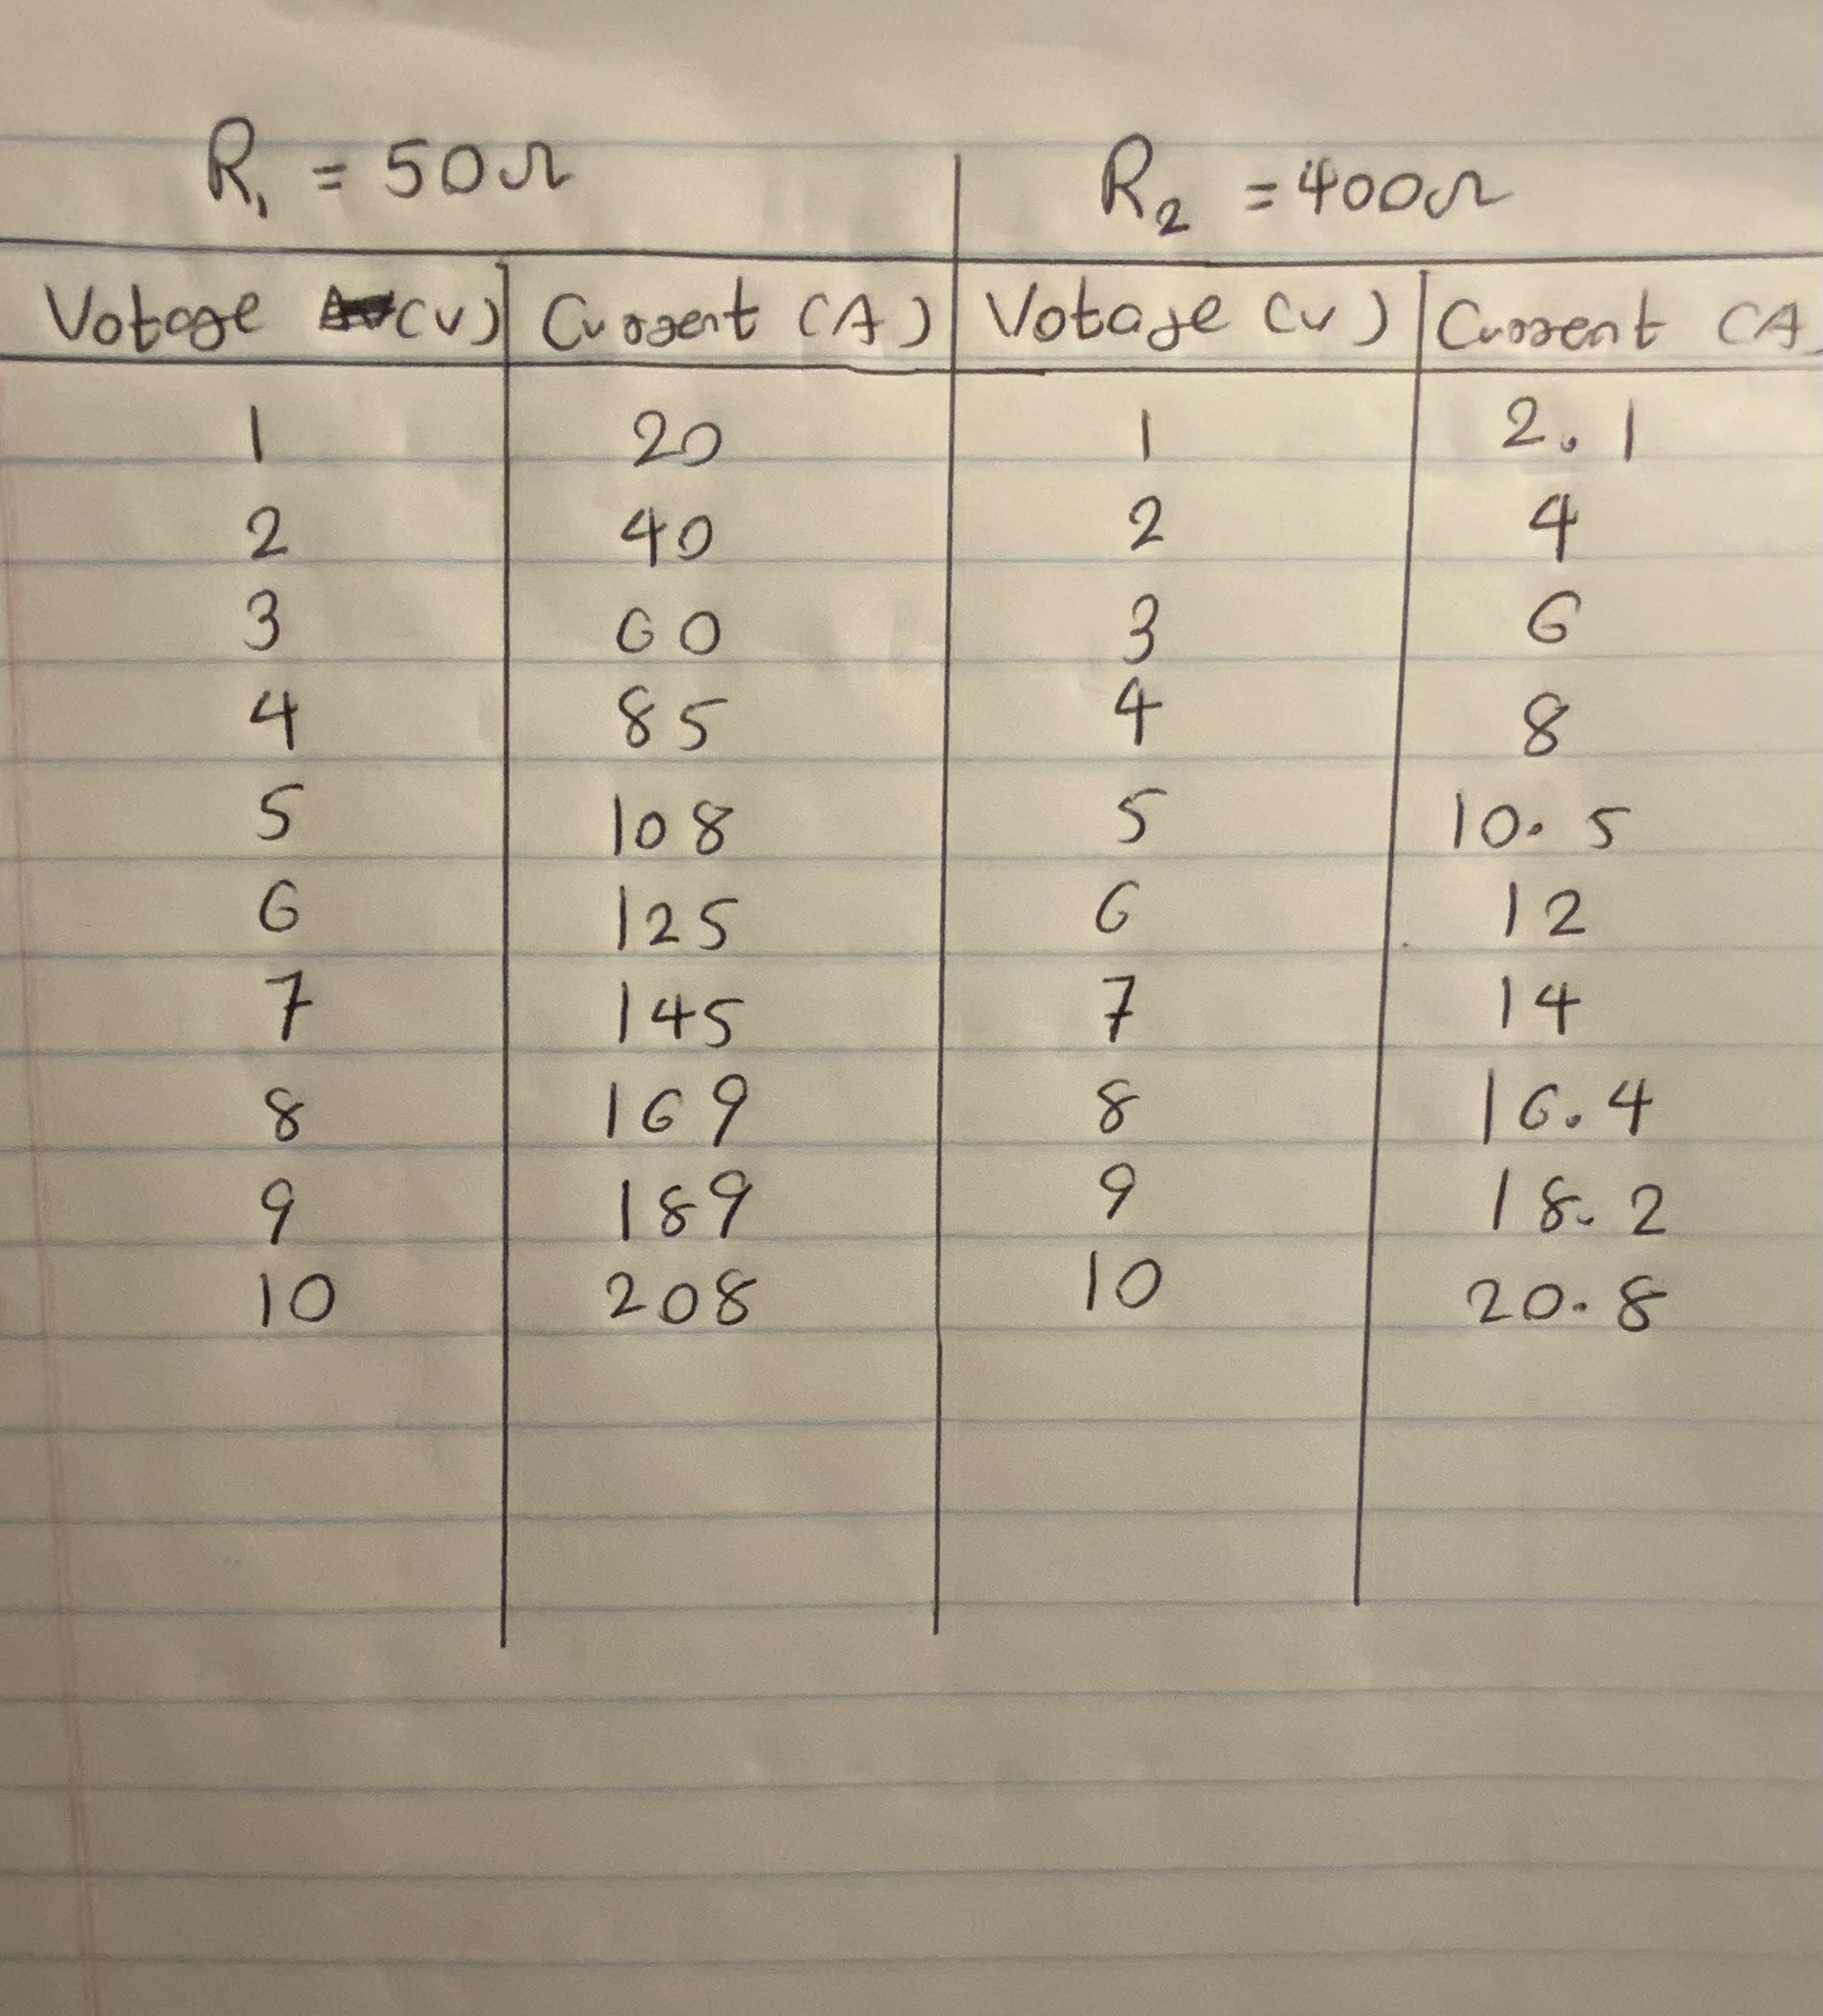 R₁ = 50Ω R₂ = 400Ω
Votage (V) Current (A) Votage (V) Current (A)
1 20 1 2.1
2 40 2 4
3 60 3 6
4 85 4 8
5 108 5 10.5
6 125 6 12
7 145 7 14
8 169 8 16.4
9 189 9 18.2
10 208 10 20.8